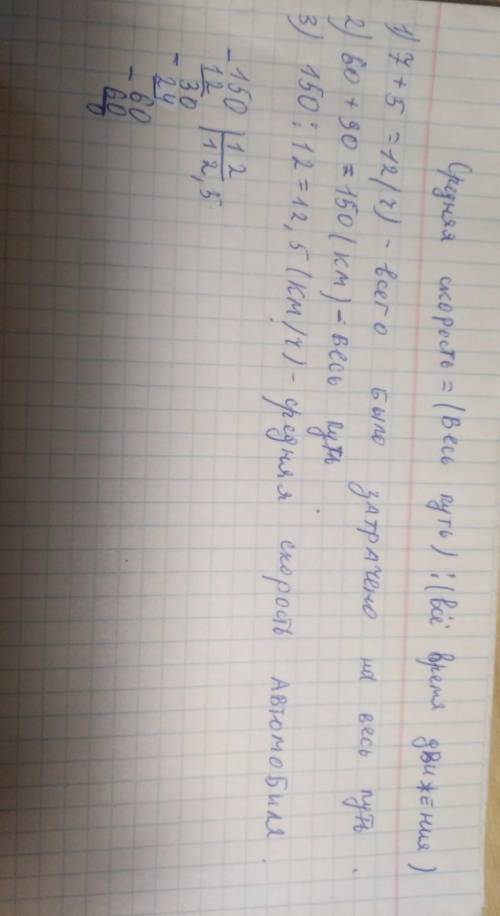 Средняя скорость = (Весь путь) : (всё время движения)
1) 7 + 5 = 12 (ч) - всего было затрачено на весь путь.
2) 60 + 90 = 150 (км) - весь путь
3) 150 : 12 = 12,5 (км/ч) - средняя скорость автомобиля.
- 150 | 12
12 | 12,5
- 30
24
- 60
60